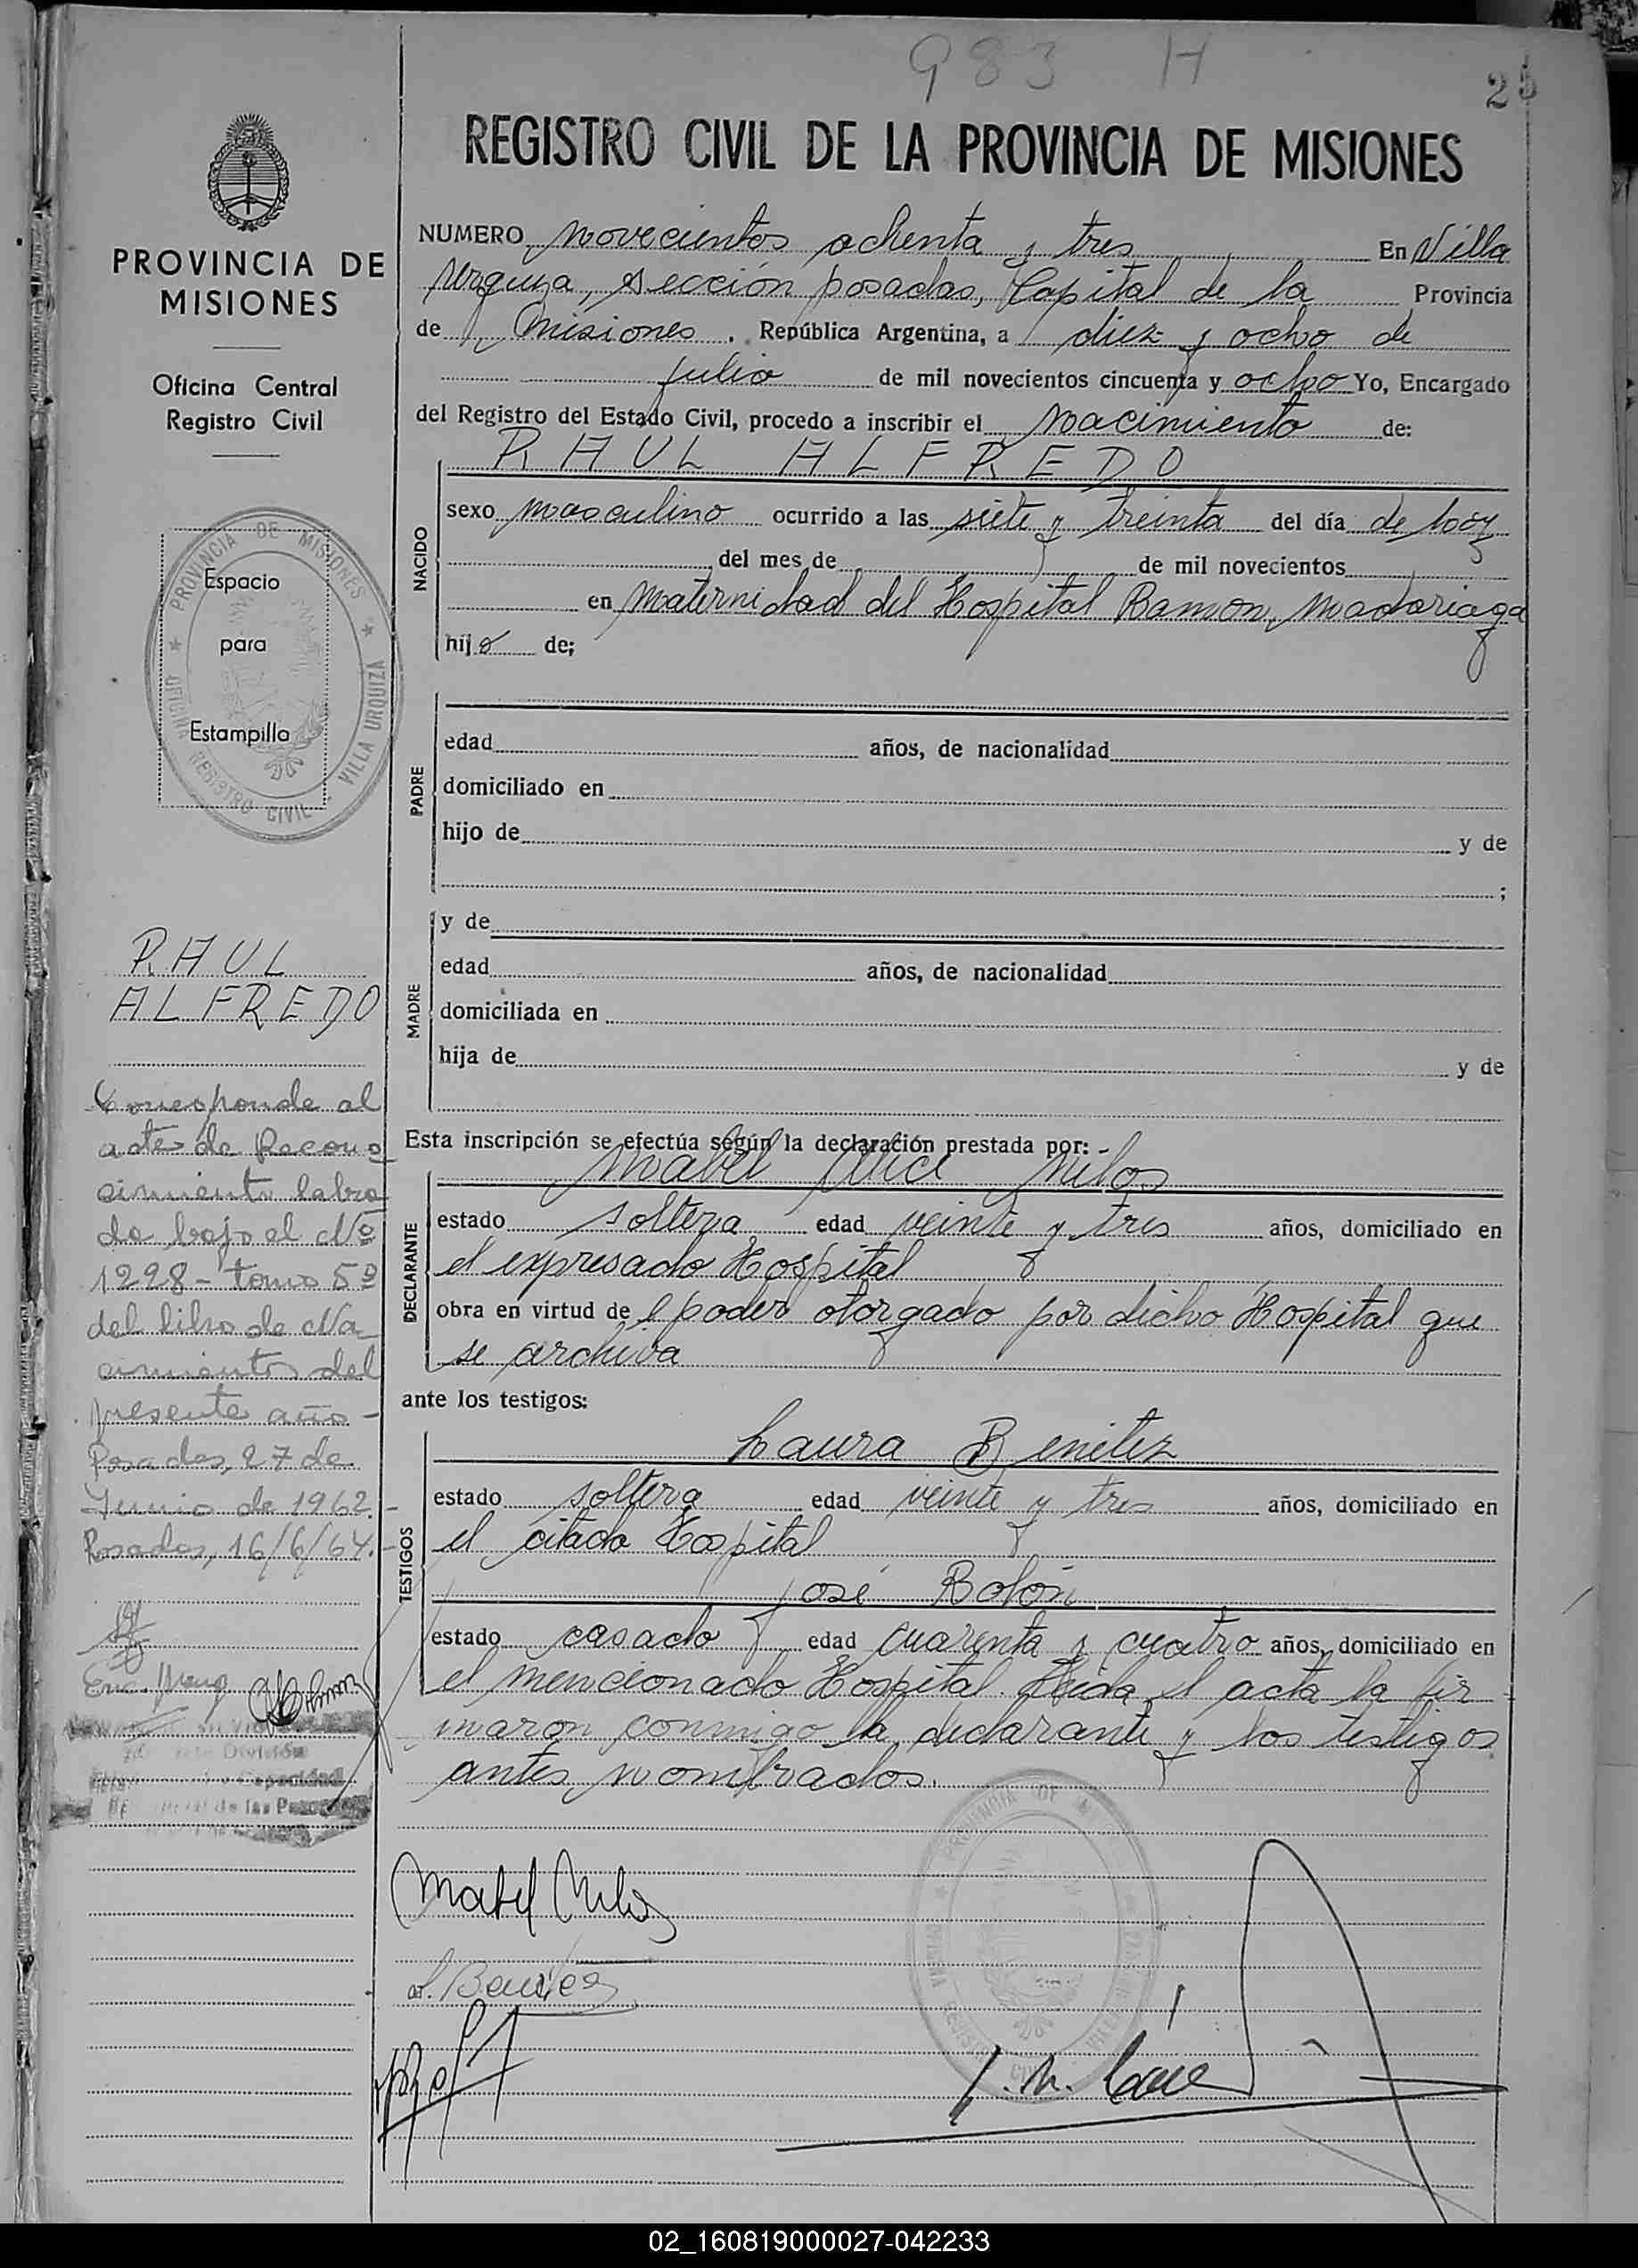 983 H
25
REGISTRO CIVIL DE LA PROVINCIA DE MISIONES
PROVINCIA DE
MISIONES
Oficina Central
Registro Civil
PROVINCIA DE MISIONES
OFICINA REGISTRO CIVIL - VILLA URQUIZA
Espacio
para
Estampilla
RAUL
ALFREDO
Corresponde al
acta de Recono
cimiento labra
da bajo el Nº
1298 - tomo 5º
del libro de Na
cimientos del
presente año -
Posadas, 27 de
Junio de 1962.-
Posadas, 16/6/64.-
División
y Capacidad
de las
NUMERO novecientos ochenta y tres En Villa
Urquiza, sección posadas, Capital de la Provincia
de Misiones. República Argentina, a diez y ocho de
julio de mil novecientos cincuenta y ocho Yo, Encargado
del Registro del Estado Civil, procedo a inscribir el nacimiento de:
RAUL ALFREDO
NACIDO
sexo masculino ocurrido a las siete y treinta del día de hoy
del mes de de mil novecientos
en Maternidad del Hospital Ramon Madariaga
hijo de;
PADRE
edad años, de nacionalidad
domiciliado en
hijo de y de
;
MADRE
y de
edad años, de nacionalidad
domiciliada en
hija de y de
Esta inscripción se efectúa según la declaración prestada por: -
Mabel Alice Milos
DECLARANTE
estado soltera edad veinte y tres años, domiciliado en
el expresado Hospital
obra en virtud de el poder otorgado por dicho Hospital que
se archiva
ante los testigos:
TESTIGOS
Laura Benitez
estado soltera edad veinte y tres años, domiciliado en
el citado Hospital
José Bolón
estado casado edad cuarenta y cuatro años, domiciliado en
el mencionado Hospital. Leida el acta la fir
maron conmigo la declarante y los testigos
antes nombrados.
PROVINCIA DE
Mabel Milos
L. Benitez
02_160819000027-042233